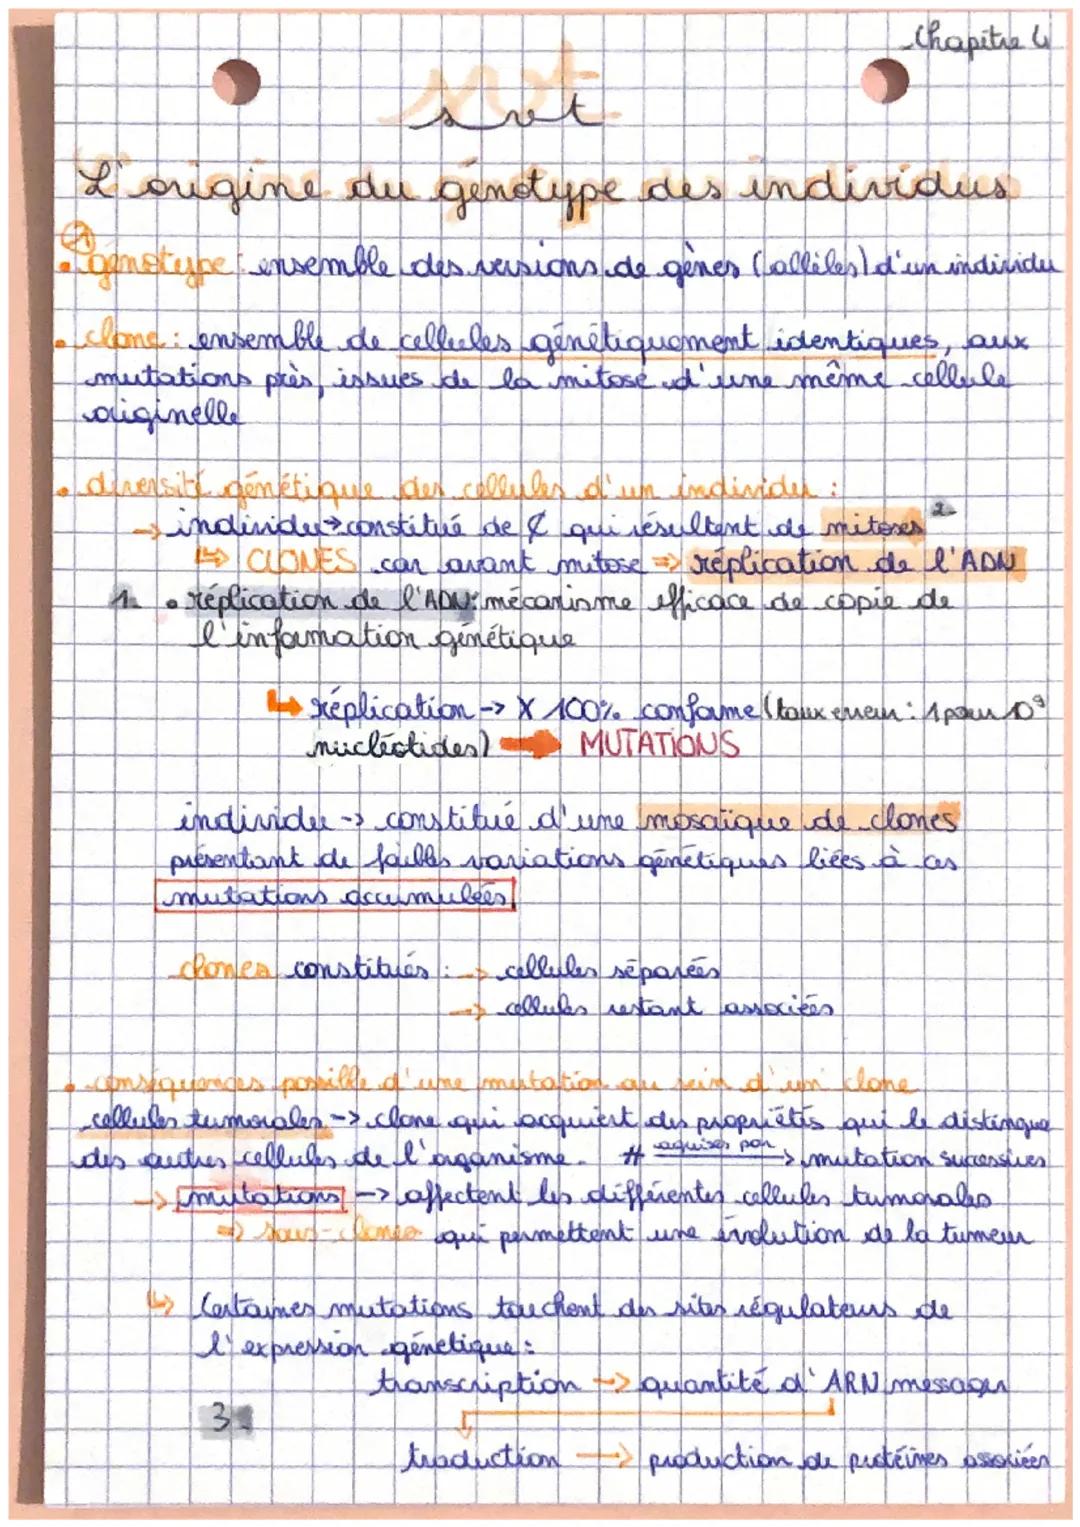 Chapitre 4
svt
svt
L'origine du génotype des individus
1
• génotype : ensemble des versions de gènes (allèles) d'un individu
• clone : ensemble de cellules génétiquement identiques, aux
mutations près, issues de la mitose d'une même cellule
originelle
• diversité génétique des cellules d'un individu :
→ individu → constitué de ₵ qui résultent de mitoses 2.
↳ CLONES car avant mitose ⇒ réplication de l'ADN
1. • réplication de l'ADN : mécanisme efficace de copie de
l'information génétique
↳ réplication -> X 100% conforme (taux erreur : 1 pour 10⁹
nucléotides) → MUTATIONS
individu -> constitué d'une mosaïque de clones
présentant de faibles variations génétiques liées à ces
mutations accumulées
clones constitués : → cellules séparées
→ cellules restant associées
• conséquences possible d'une mutation au sein d'un clone
cellules tumorales -> clone qui acquiert des propriétés qui le distingue
des autres cellules de l'organisme. # aquises par → mutation successives
→ mutations -> affectent les différentes cellules tumorales
⇒ sous-clones qui permettent une évolution de la tumeur
↳ Certaines mutations touchent des sites régulateurs de
l'expression génétique :
transcription → quantité d'ARN messager
3.
traduction → production de protéines associées